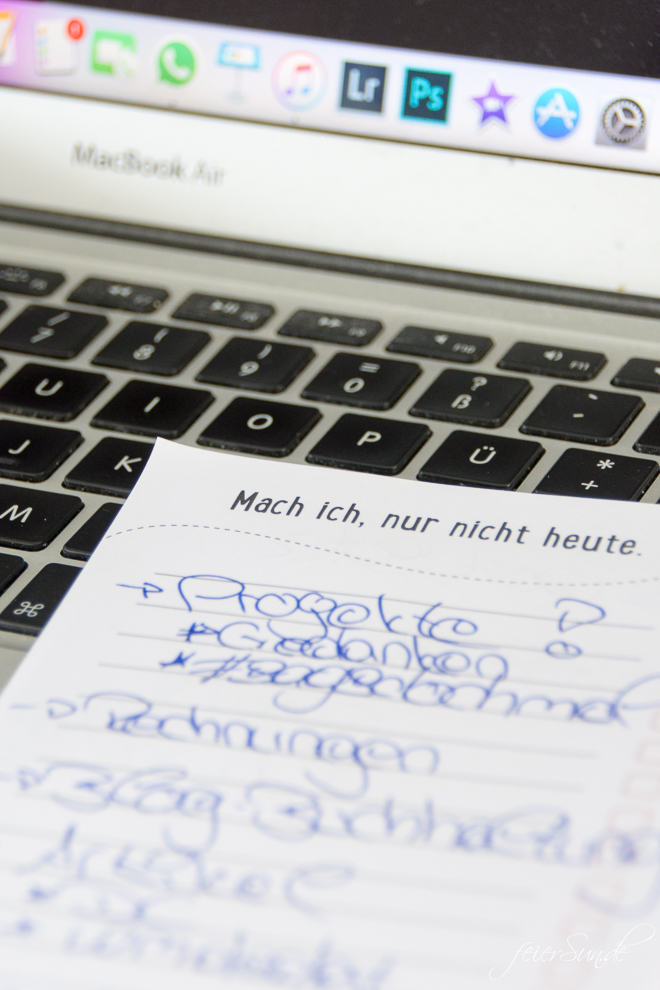 Lr Ps
MacBook Air
/ 7 ( 8 ) 9 = 0 ? ß `
F10 F11
U I O P Ü * +
J K
M
⌘
Mach ich, nur nicht heute.
→ Projekte ?
* Gedanken
* #sagesnochmal
→ Rechnungen
→ Blog Buchhaltung
Artikel
feierSunde